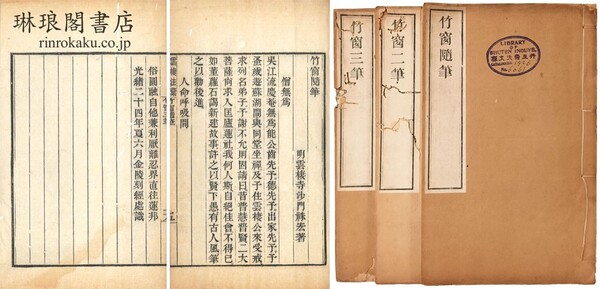 琳琅閣書店
rinrokaku.co.jp
竹窗隨筆
明雲棲寺沙門袾宏著
僧無為
吳江流慶菴無為能公齒先予德先予出家先予予
蚤歲遊蘇湖間與同堂坐禪及予住雲棲公來受戒
求列名弟子予謝不允則固請曰昔普慧普賢二大
菩薩尚求入匡廬蓮社我何人斯自絕佳會不得已
如董蘿石謁新建故事許之以賢下愚有古人風筆
之以勸後進
人命呼吸間
俗圓融自他兼利厭離忍界直往蓮邦
光緒二十四年夏六月金陵刻經處識
竹窗隨筆
竹窗二筆
竹窗三筆
LIBRARY
OF
INOUYE